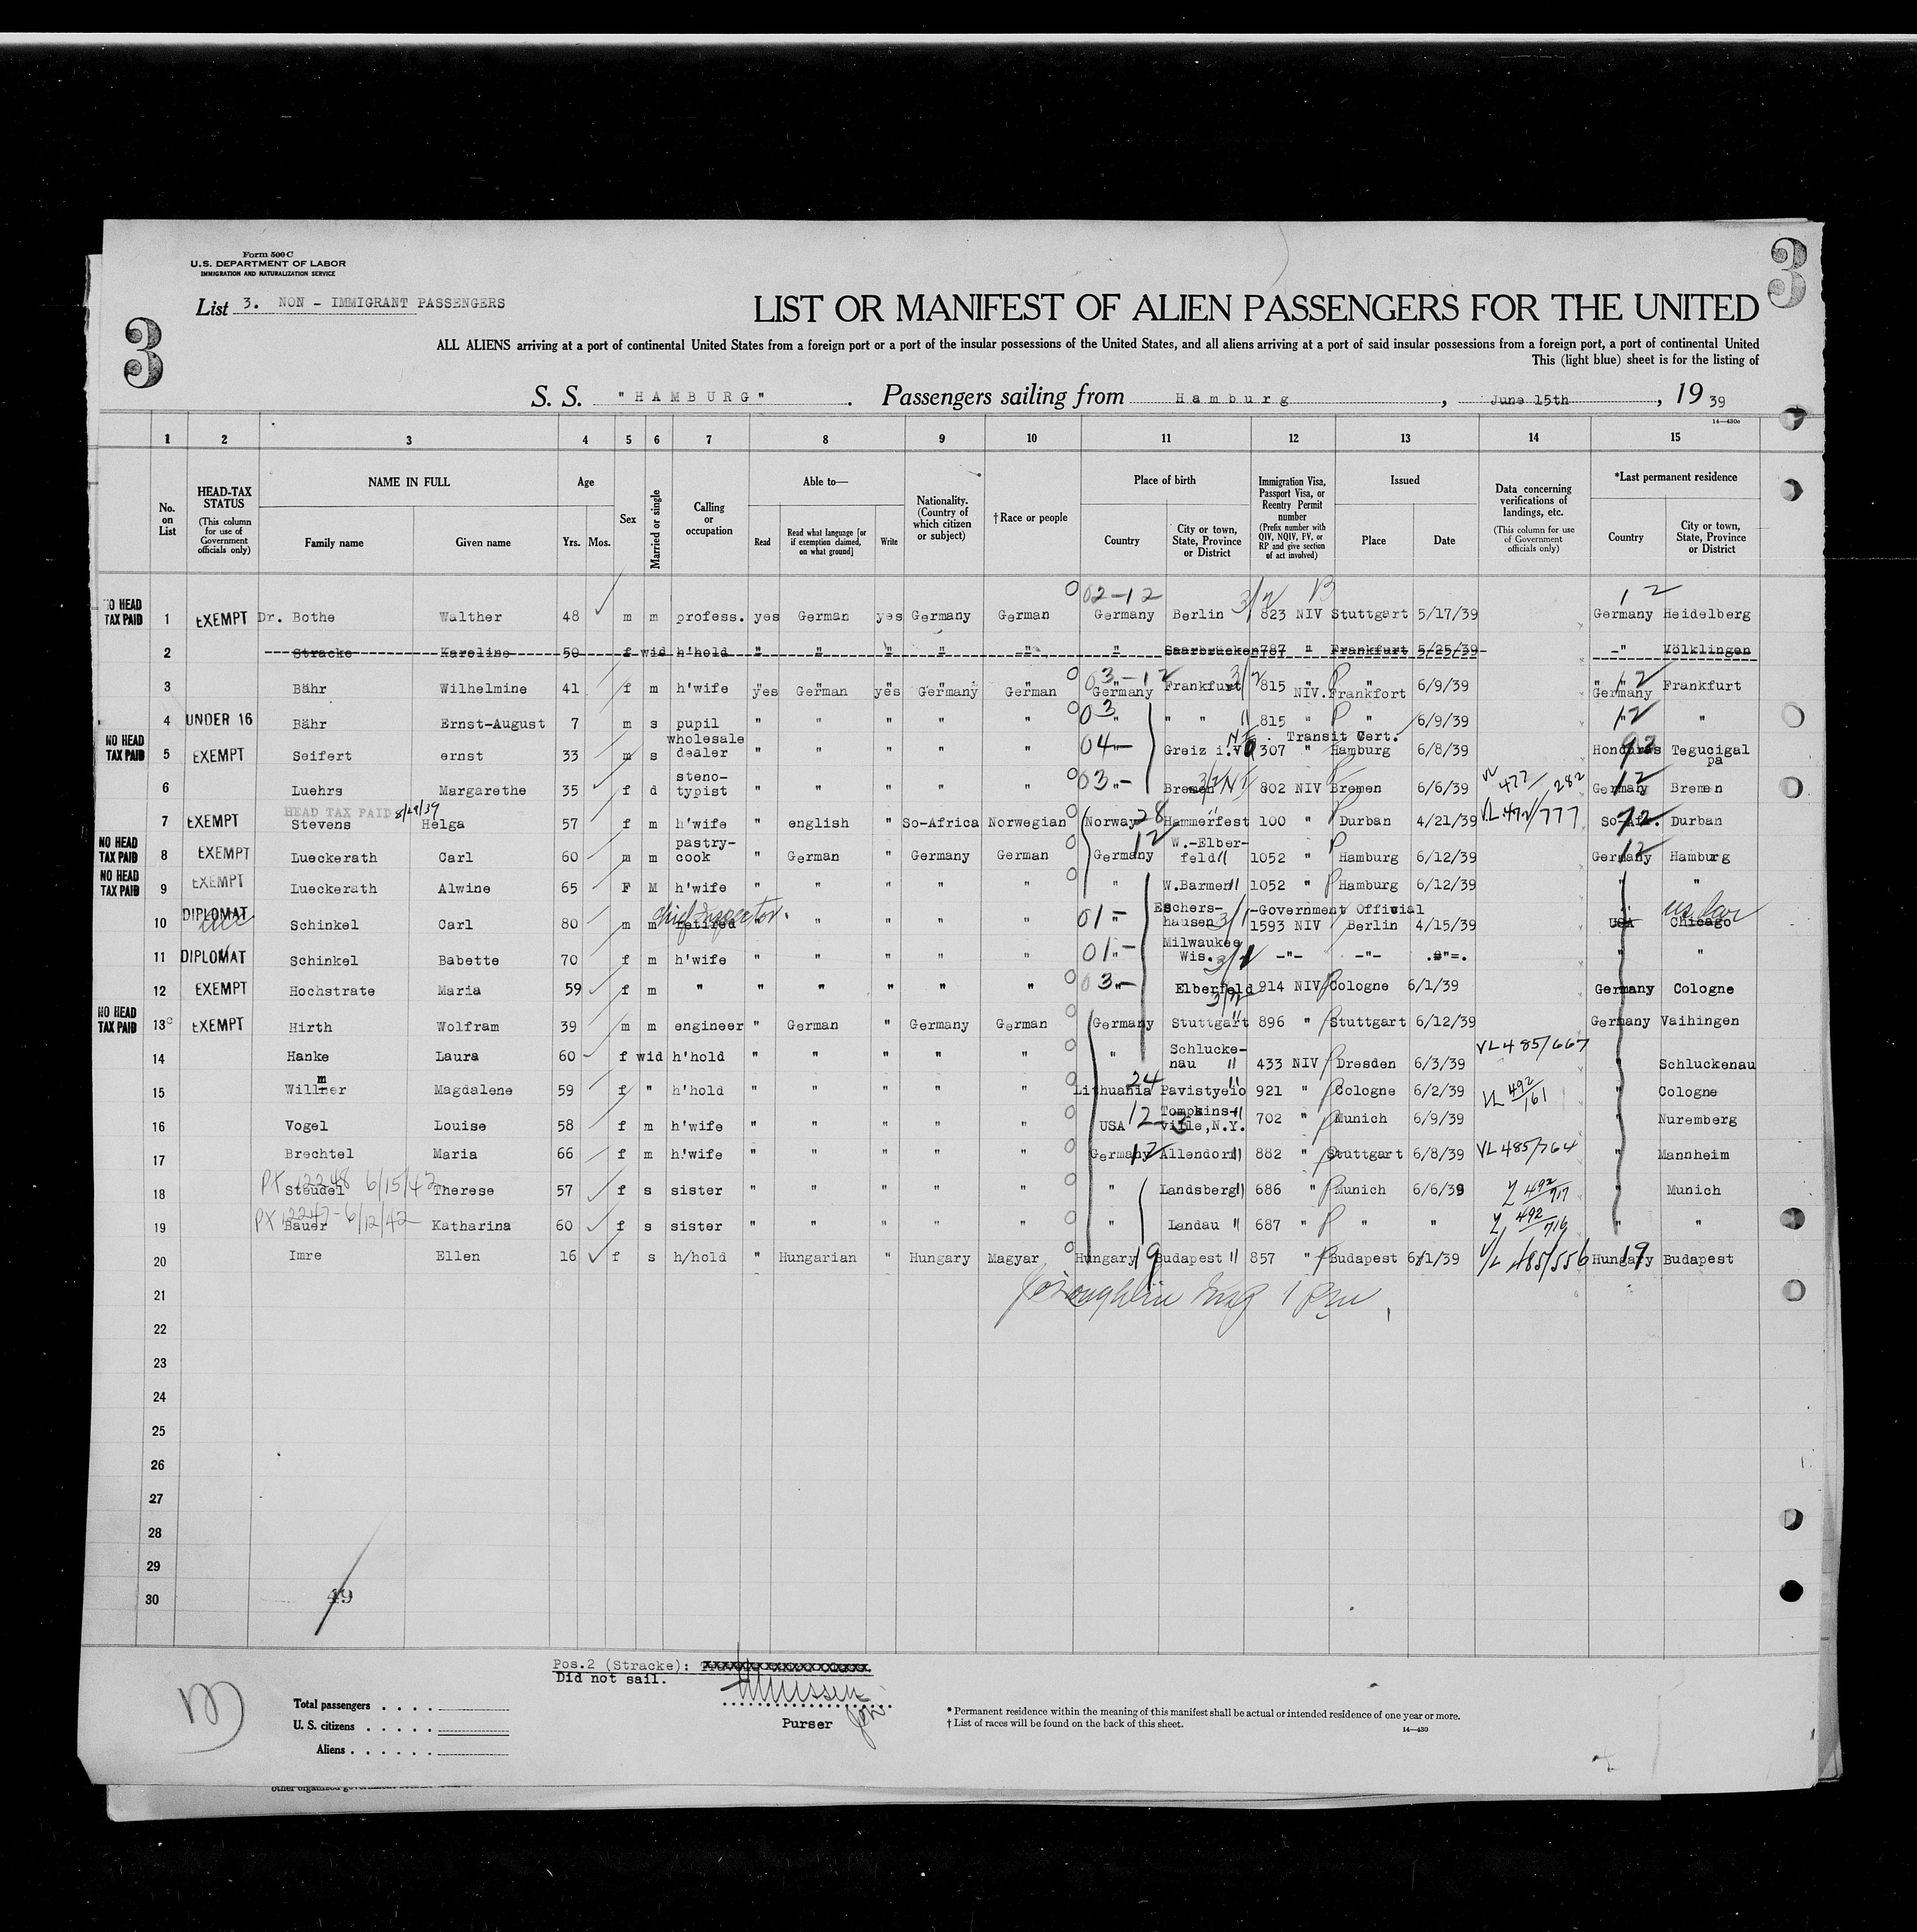 Form 500 C
U.S. DEPARTMENT OF LABOR
IMMIGRATION AND NATURALIZATION SERVICE
3
List 3. NON - IMMIGRANT PASSENGERS
LIST OR MANIFEST OF ALIEN PASSENGERS FOR THE UNITED
3
ALL ALIENS arriving at a port of continental United States from a foreign port or a port of the insular possessions of the United States, and all aliens arriving at a port of said insular possessions from a foreign port, a port of continental United
This (light blue) sheet is for the listing of
S. S. "HAMBURG". Passengers sailing from Hamburg, June 15th, 19 39
14—430c
1 2 3 4 5 6 7 8 9 10 11 12 13 14 15
No. on List
HEAD-TAX STATUS (This column for use of Government officials only)
NAME IN FULL Family name Given name
Age Yrs. Mos.
Sex
Married or single
Calling or occupation
Able to— Read Read what language [or if exemption claimed, on what ground] Write
Nationality. (Country of which citizen or subject)
†Race or people
Place of birth Country City or town, State, Province or District
Immigration Visa, Passport Visa, or Reentry Permit number (Prefix number with QIV, NQIV, PV, or RP and give section of act involved)
Issued Place Date
Data concerning verifications of landings, etc. (This column for use of Government officials only)
*Last permanent residence Country City or town, State, Province or District
02-12 3/2 12
NO HEAD TAX PAID 1 EXEMPT Dr. Bothe Walther 48 m m profess. yes German yes Germany German Germany Berlin 823 NIV Stuttgart 5/17/39 Germany Heidelberg
2 Stracke Karoline 50 f wid h'hold " " " " " " Saarbrücken 787 " Frankfurt 5/25/39 -" Völklingen
03-12 3/2 12
3 Bähr Wilhelmine 41 f m h'wife yes German yes Germany German Germany Frankfurt 815 NIV. Frankfort 6/9/39 Germany Frankfurt
4 UNDER 16 Bähr Ernst-August 7 m s pupil " " " " " 03 " " " 815 " P " 6/9/39 12 "
NO HEAD TAX PAID 5 EXEMPT Seifert ernst 33 m s wholesale dealer " " " " " 04- Greiz i.V 307 Transit Cert. " Hamburg 6/8/39 Honduras Tegucigalpa
6 Luehrs Margarethe 35 f d steno-typist " " " " " 03- Bremen 802 NIV Bremen 6/6/39 VL 477/282 Germany 12 Bremen
HEAD TAX PAID 8/29/39
7 EXEMPT Stevens Helga 57 f m h'wife " english " So-Africa Norwegian Norway 28 Hammerfest 100 " Durban 4/21/39 VL.472/777 So-Afr. Durban
NO HEAD TAX PAID 8 EXEMPT Lueckerath Carl 60 m m pastry-cook " German " Germany German Germany 12 W.-Elber-feld 1052 " P Hamburg 6/12/39 Germany 12 Hamburg
NO HEAD TAX PAID 9 EXEMPT Lueckerath Alwine 65 F M h'wife " " " " " " W.Barmen 1052 " P Hamburg 6/12/39 " "
10 DIPLOMAT Schinkel Carl 80 m m retired chief Inspector. " " " " " 01- Eschers-hausen 3/1 -Government Official 1593 NIV Berlin 4/15/39 USA Chicago
11 DIPLOMAT Schinkel Babette 70 f m h'wife " " " " " 01- Milwaukee Wis. -"- -"- " "
12 EXEMPT Hochstrate Maria 59 f m " " " " " " 03- Elberfeld 914 NIV P Cologne 6/1/39 Germany Cologne
NO HEAD TAX PAID 13 EXEMPT Hirth Wolfram 39 m m engineer " German " Germany German Germany Stuttgart 896 " P Stuttgart 6/12/39 Germany Vaihingen
14 Hanke Laura 60 f wid h'hold " " " " " " Schlucke-nau 433 NIV P Dresden 6/3/39 VL 485/667 Schluckenau
15 Willmer Magdalene 59 f " h'hold " " " " " Lithuania 24 Pavistyelo 921 " P Cologne 6/2/39 VL 492/161 " Cologne
16 Vogel Louise 58 f m h'wife " " " " " USA 12 Tompkins-ville,N.Y. 702 " P Munich 6/9/39 Nuremberg
17 Brechtel Maria 66 f m h'wife " " " " " Germany 12 Allendorf 882 " P Stuttgart 6/8/39 VL 485/764 " Mannheim
PX 12248 6/15/42
18 Steudel Therese 57 f s sister " " " " " " Landsberg 686 " P Munich 6/6/39 492/717 " Munich
PX 12247 - 6/12/42
19 Bauer Katharina 60 f s sister " " " " " " Landau " 687 " P " " 492/716 " "
20 Imre Ellen 16 f s h/hold " Hungarian " Hungary Magyar Hungary 19 Budapest " 857 " P Budapest 6/1/39 V/L 485/556 Hungary 19 Budapest
21
22
23
24
25
26
27
28
29
30 49
Pos.2 (Stracke):
Did not sail.
Purser
Total passengers . . . .
U. S. citizens . . . . .
Aliens . . . . . .
* Permanent residence within the meaning of this manifest shall be actual or intended residence of one year or more.
† List of races will be found on the back of this sheet.
14—430